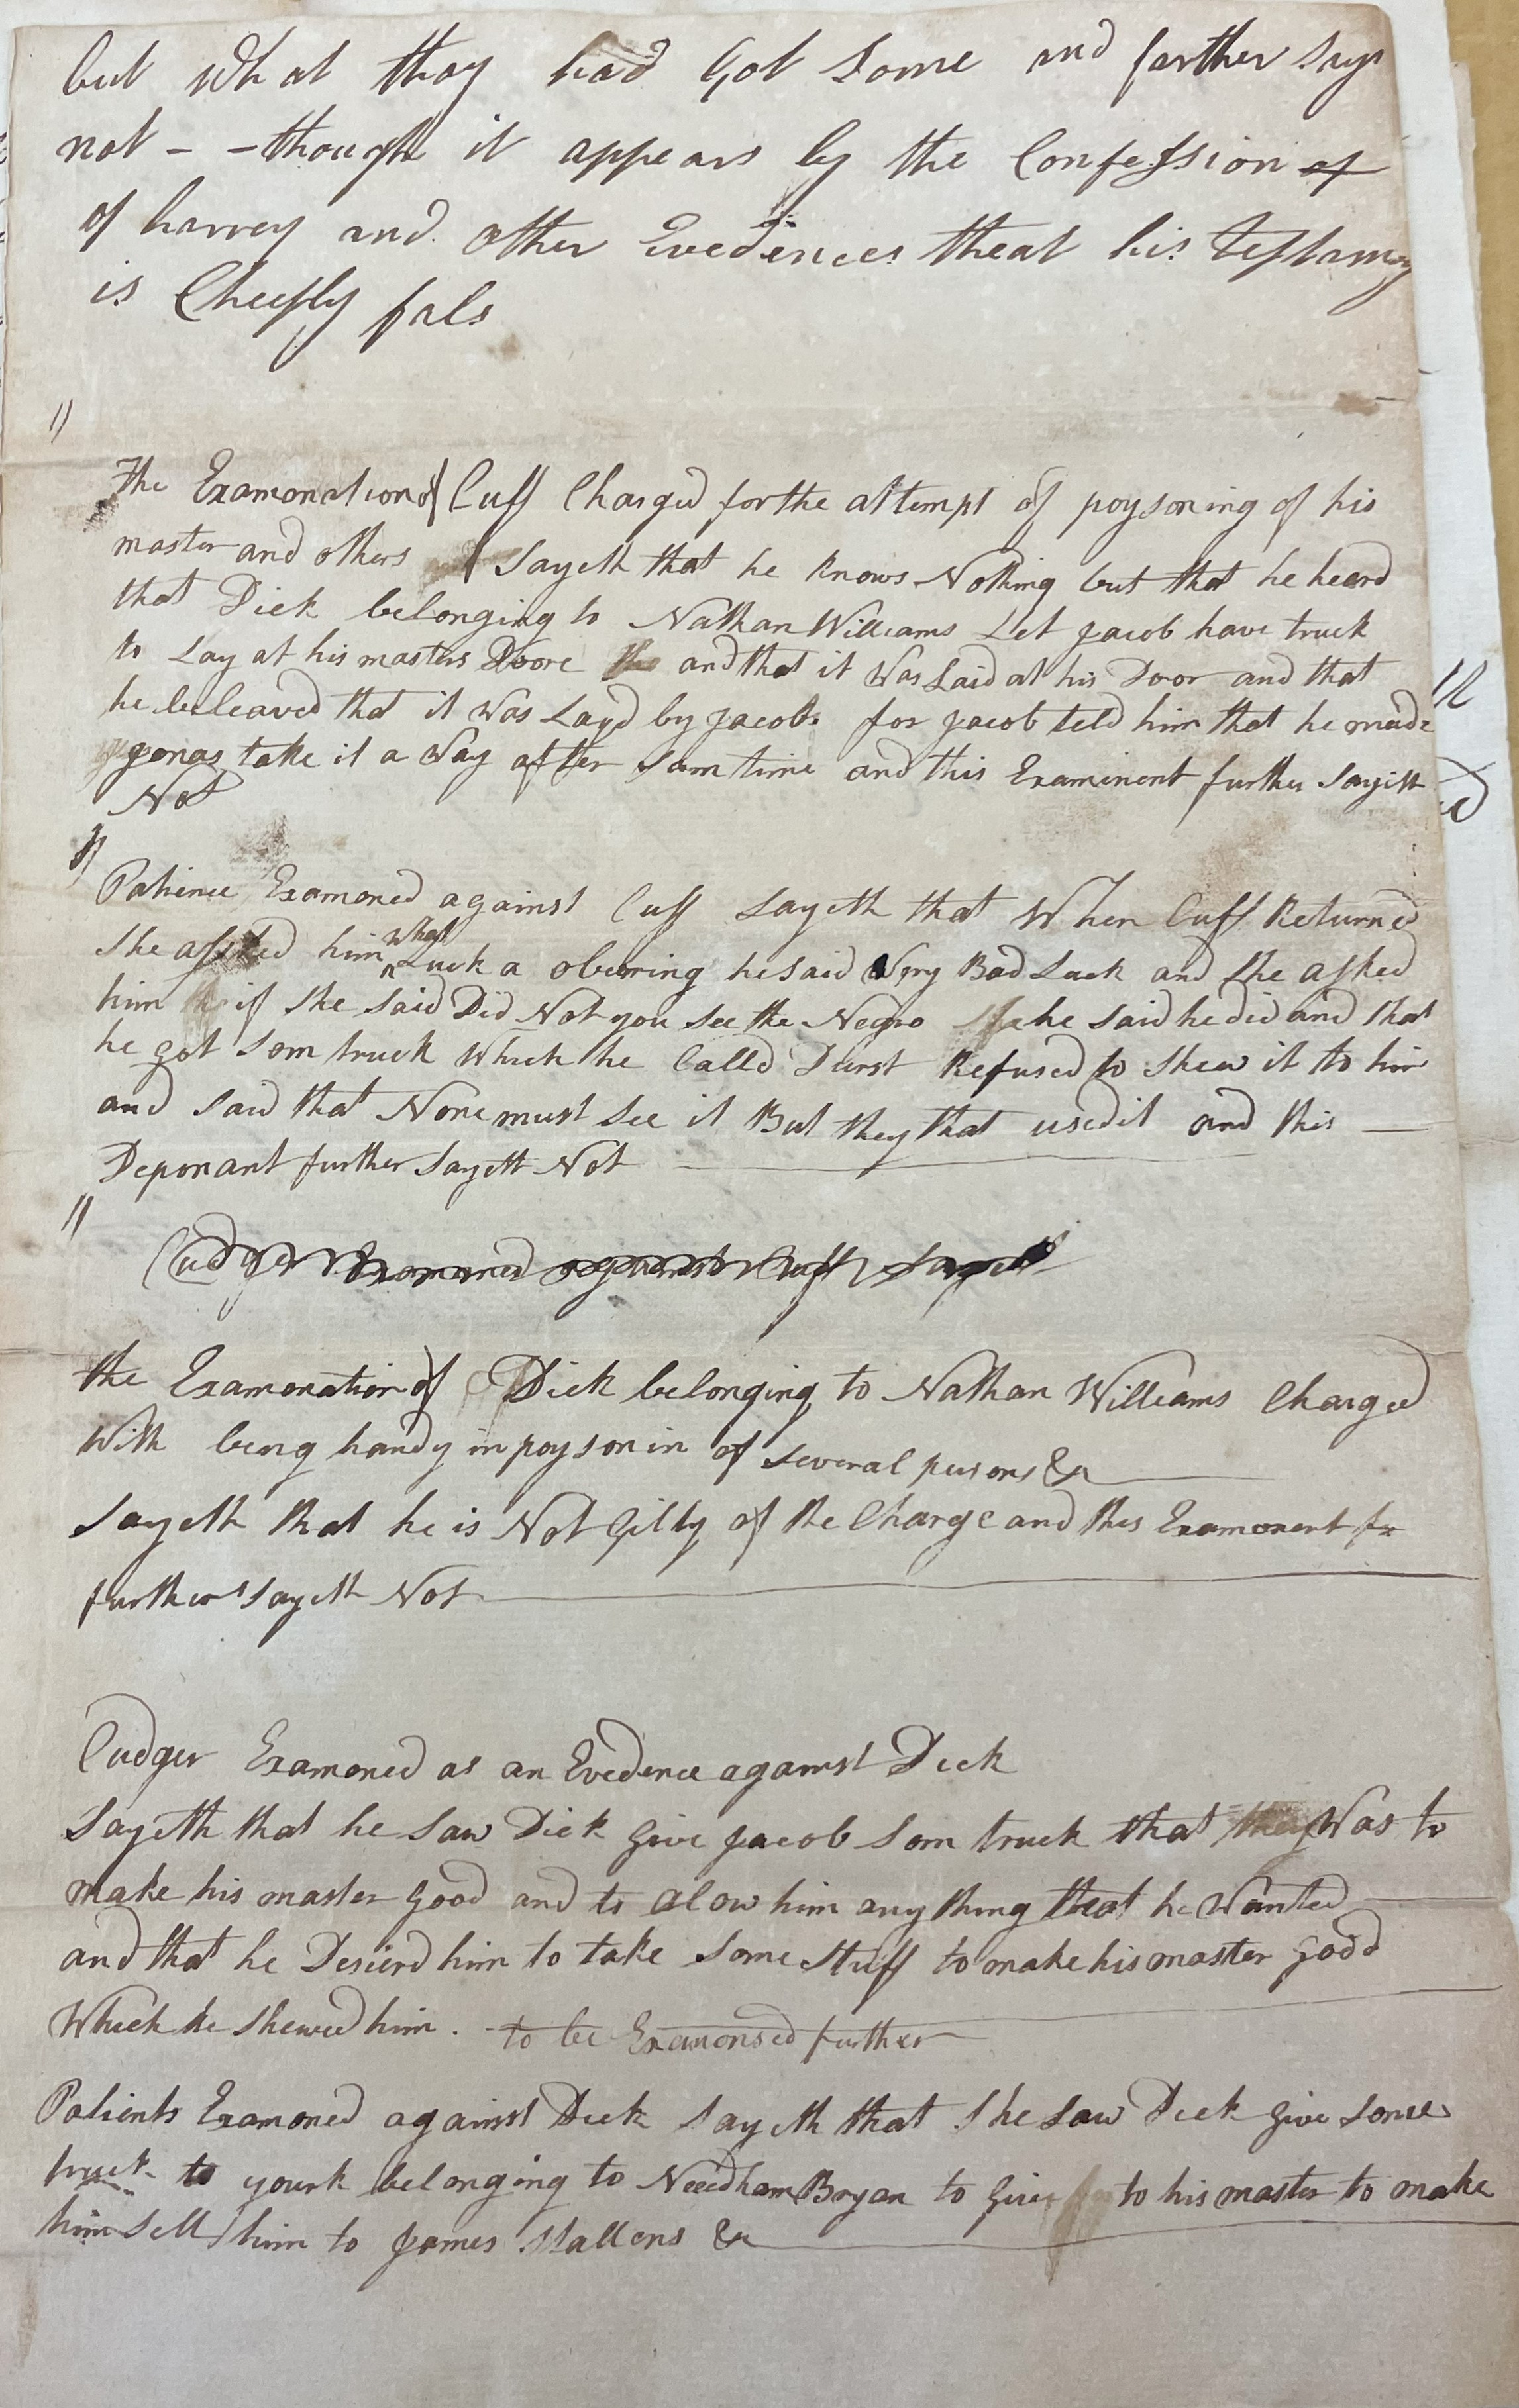 but what thay had Got Some and farther Says
not - - though it appears by the Confession of
of harvey and other Evedences theat his Testamony
is Cheefly fals
The Examonation of Cuff Charged for the attempt of poysoning of his
master and others Sayeth that he knows Nothing but that he heard
that Dick belonging to Nathan Williams Let Jacob have truck
to Lay at his masters Doore and that it Was Laid at his Door and that
he beleaved that it Was Layd by Jacob for Jacob teld him that he made
Jonas take it a Way after Som time and this Examinent further Sayeth
Not
Patience Examoned against Cuff Sayeth that When Cuff Returned
She asked him what Luck a obeering he Said Very Bad Luck and She asked
him if She Said Did Not you See the Negro he Said he did and that
he got Som truck Which he Calld Durst Refused to Shew it to him
and Said that None must See it But they that used it and this
Deponant further Sayeth Not
Cudger Examoned against Cuff Sayeth
the Examonation of Dick belonging to Nathan Williams Charged
With being handy in poysonin of Several persons &c
Sayeth that he is Not Gilty of the Charge and this Examonent fu
further Sayeth Not
Cudger Examoned as an Evedence against Dick
Sayeth that he Saw Dick Give Jacob Som truck that Was to
make his master Good and to alow him any thing that he Wanted
and that he Desierd him to take Some Stuff to make his master Good
Which he Shewed him. to be Examonsed further
Patients Examoned against Dick Sayeth that She Saw Dick Give Some
truck to yourk belonging to Needham Bryan to Give to his master to make
him Sell him to James Stallens &c